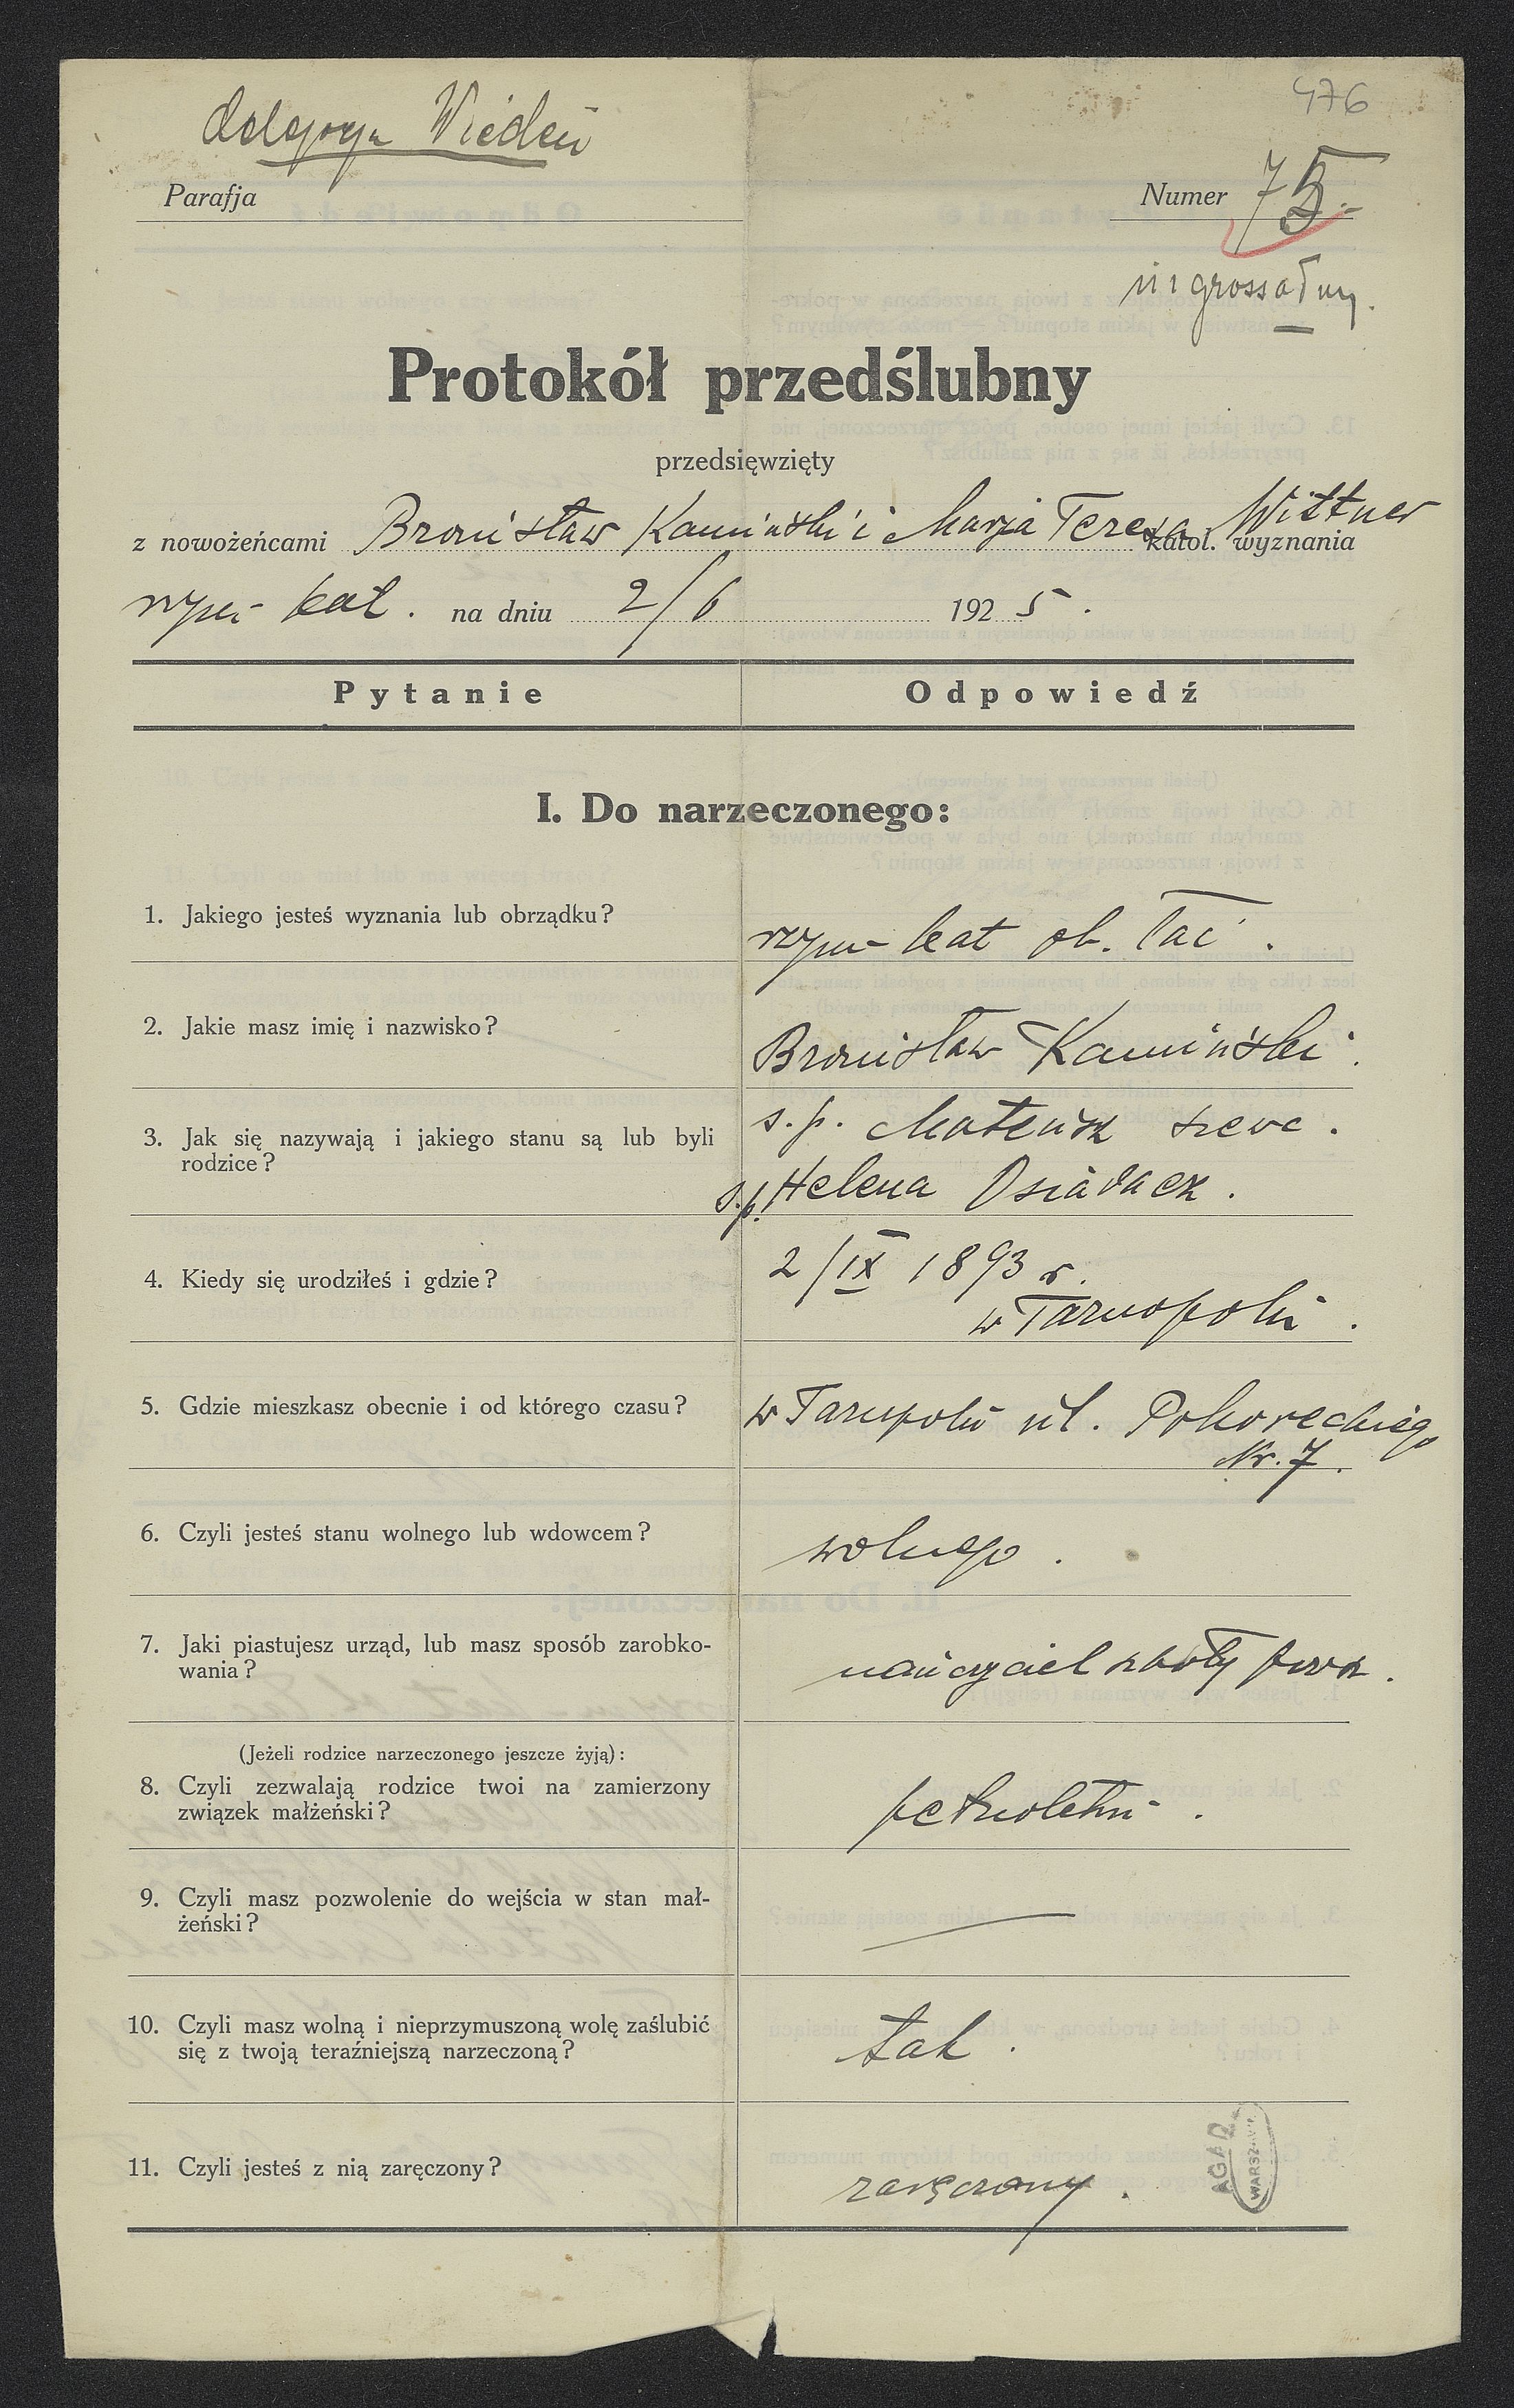 476
delegacya Wiedeń
Parafja
Numer 75.-
ingrossatum.
Protokół przedślubny
przedsięwzięty
z nowożeńcami Bronisław Kamiński i Marja Teresa Wittner katol. wyznania
rzym- kat. na dniu 2/6 1925.
Pytanie Odpowiedź
I. Do narzeczonego:
1. Jakiego jesteś wyznania lub obrządku?
rzym- kat ob. łać.
2. Jakie masz imię i nazwisko?
Bronisław Kamiński.
3. Jak się nazywają i jakiego stanu są lub byli
rodzice?
s.p. Mateusz szewc.
s.p. Helena Osiadacz.
4. Kiedy się urodziłeś i gdzie?
2/IX 1893 r.
w Tarnopolu.
5. Gdzie mieszkasz obecnie i od którego czasu?
w Tarnopolu ul. Pohoreckiego
Nr. 7.
6. Czyli jesteś stanu wolnego lub wdowcem?
wolnego.
7. Jaki piastujesz urząd, lub masz sposób zarobko-
wania?
nauczyciel szkoły powsz.
(Jeżeli rodzice narzeczonego jeszcze żyją):
8. Czyli zezwalają rodzice twoi na zamierzony
związek małżeński?
pełnoletni.
9. Czyli masz pozwolenie do wejścia w stan mał-
żeński?
—
10. Czyli masz wolną i nieprzymuszoną wolę zaślubić
się z twoją teraźniejszą narzeczoną?
tak.
11. Czyli jesteś z nią zaręczony?
zaręczony.
AGAD
WARSZAWA